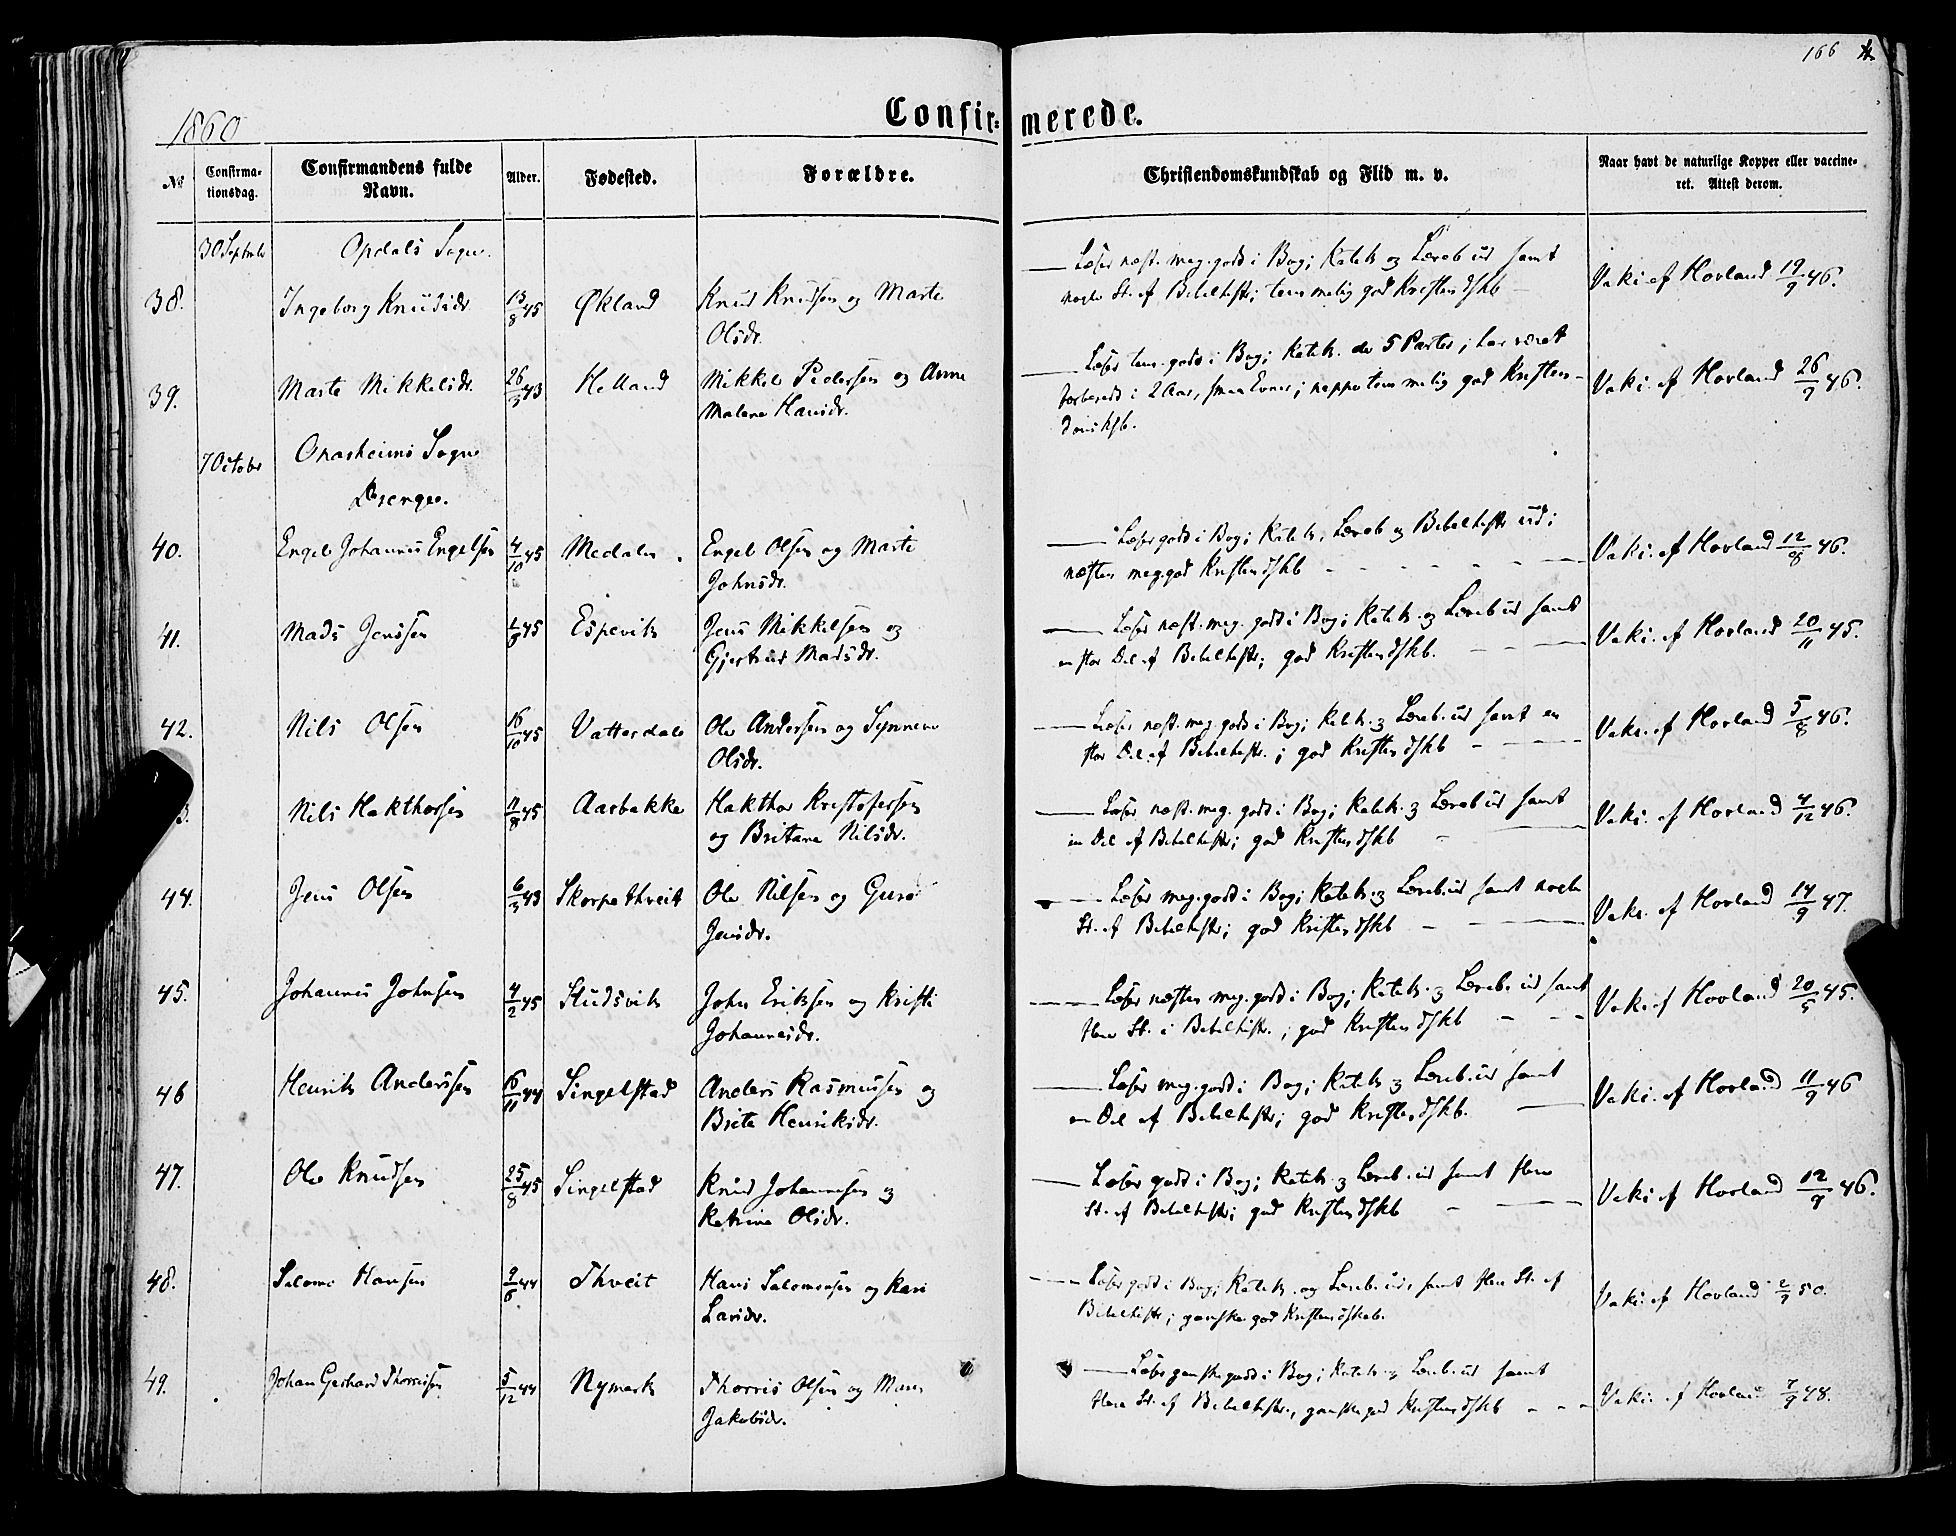 166
1860
Confir= merede.
No
Confirma-
tionsdag.
Confirmandens fulde
Navn.
Alder.
Fødested.
Forældre.
Christendomskundskab og Flid m. v.
Naar havt de naturlige Kopper eller vaccine-
ret. Attest derom.
30 Septmbr Opdals Sogn.
38. Ingeborg Knudsdr. 13/8 45 Økland Knud Knudsen og Marte
Olsdr.
Læser næst. meg. godt i Bog; Katek. og Læreb. ud samt
nogle St. af Bibelhistr; temmelig god Kristendskb
Vaki. af Hovland 19/9 46.
39. Marte Mikkelsdr. 26/3 43 Helland Mikkel Pedersen og Anne
Malene Hansdr.
Læser tem. godt i Bog; Katek. de 5 Parter; har været
forberedt i 2 Aar, smaa Evner; neppe temmelig god Kristen-
domskb.
Vaki. af Hovland 26/9 46.
7 October Onarheims Sogn
Drenge.
40. Engel Johannes Engelsen 4/10 45 Medalen Engel Olsen og Marte
Johnsdr.
Læser godt i Bog; Katek., Læreb. og Bibelhistr ud;
næsten meg. god Kristendskb
Vaki. af Hovland 12/8 46.
41. Mads Jenssen 1/8 45 Espevik Jens Mikkelsen og
Gjertrud Madsdr.
Læser næst. meg. godt i Bog; Katek. og Læreb. ud samt
en stor Del af Bibelhistr; god Kristendskb.
Vaki. af Hovland 20/11 45.
42. Nils Olsen 16/10 45 Vatterdal Ole Anderssen og Synneve
Olsdr.
Læser næst. meg. godt i Bog; Katek. og Læreb. ud samt en
stor Del af Bibelhistr.; god Kristendskb
Vaki. af Hovland 5/8 46.
3. Nils Hakthorsen 11/8 45 Aarbakke Hakthor Kristofersen
og Britane Nilsdr.
Læser næst. meg. godt i Bog; Katek. og Læreb. ud samt
en Del af Bibelhistr; god Kristendskb
Vaki. af Hovland 4/12 46.
44. Jens Olsen 6/3 43 Skorpethveit Ole Nilsen og Guro
Jensdr.
Læser meg. godt i Bog; Katek. og Læreb. ud samt nogle
St. af Bibelhistr; god Kristendskb
Vaki. af Hovland 14/9 47.
45. Johannes Johnsen 4/2 45 Studsvik John Eriksen og Kristi
Johannesdr.
Læser næsten meg. godt i Bog; Katek. og Læreb. ud samt
flere St. i Bibelhistr.; god Kristendskb
Vaki. af Hovland 20/5 45.
46 Henrik Anderssen 16/11 44 Singelstad Anders Rasmussen og
Brite Henriksdr.
Læser meg. godt i Bog; Katek. og Læreb. ud samt
en Del af Bibelhistr; god Kristendskb.
Vaki. af Hovland 11/9 46
47. Ole Knudsen 25/8 45 Singelstad Knud Johannesen og
Katrine Olsdr.
Læser godt i Bog; Katek. og Læreb. ud samt flere
St. af Bibelhistr; god Kristendskb
Vaki. af Hovland 12/9 46.
48. Salomo Hansen 9/6 44 Thveit Hans Salomonsen og Kari
Larsdr.
Læser godt i Bog; Katek. og Læreb. ud, samt flere St. af
Bibelhistr; ganske god Kristendskab.
Vaki. af Hovland 2/9 50.
49. Johan Gerhard Thorrissen 5/12 44 Nymark Thorris Olsen og Maren
Jakobsdr.
Læser ganske godt i Bog; Katek. og Læreb. ud samt
flere St. af Bibelhistr., ganske god Kristendskb
Vaki. af Hovland 7/9 48.